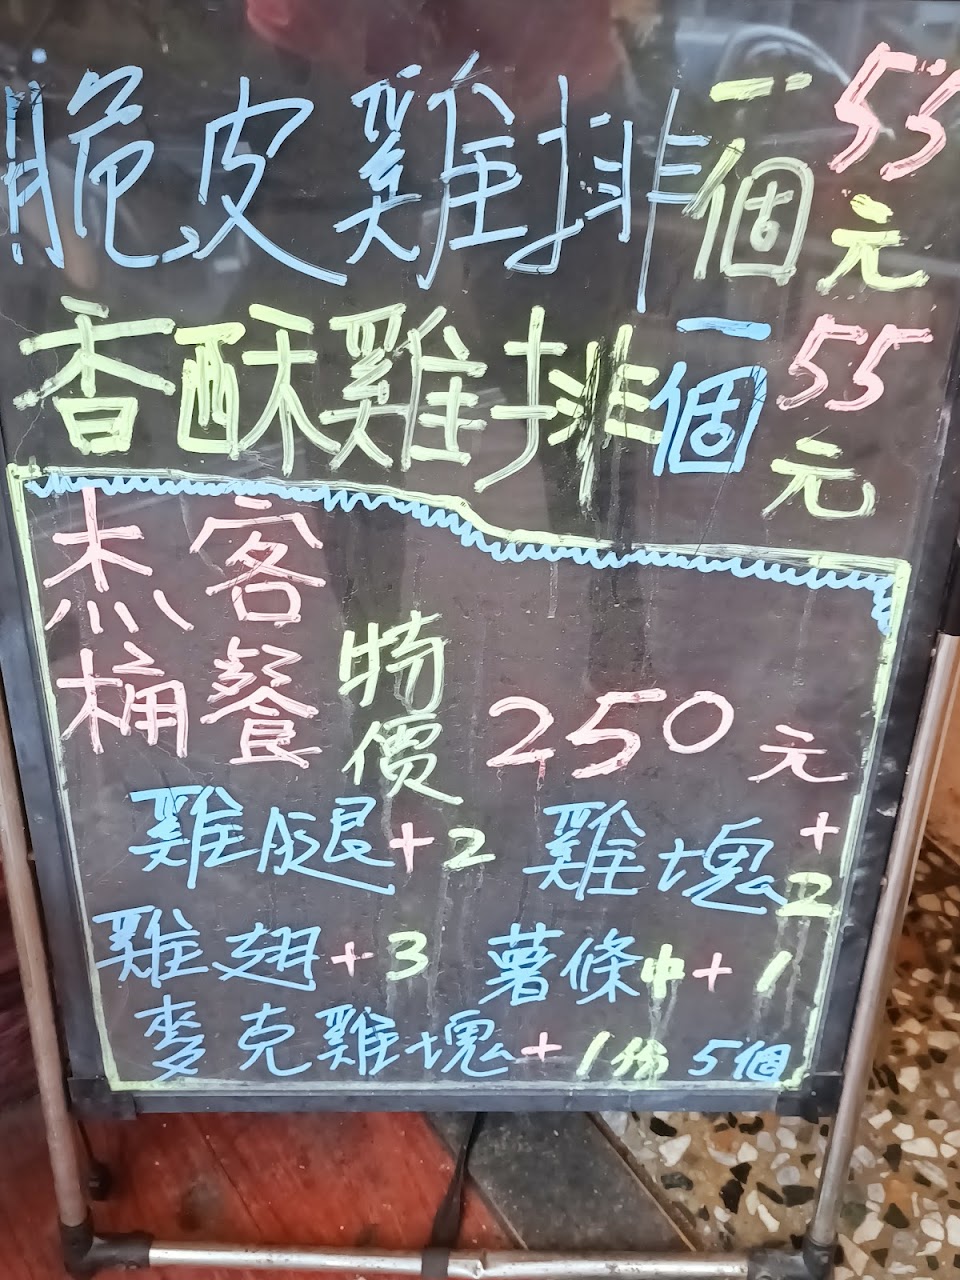 脆皮雞排一個55元
香酥雞排一個55元
杰客
桶餐 特價 250元
雞腿+2 雞塊+2
雞翅+3 薯條中+1
麥克雞塊+1份5個